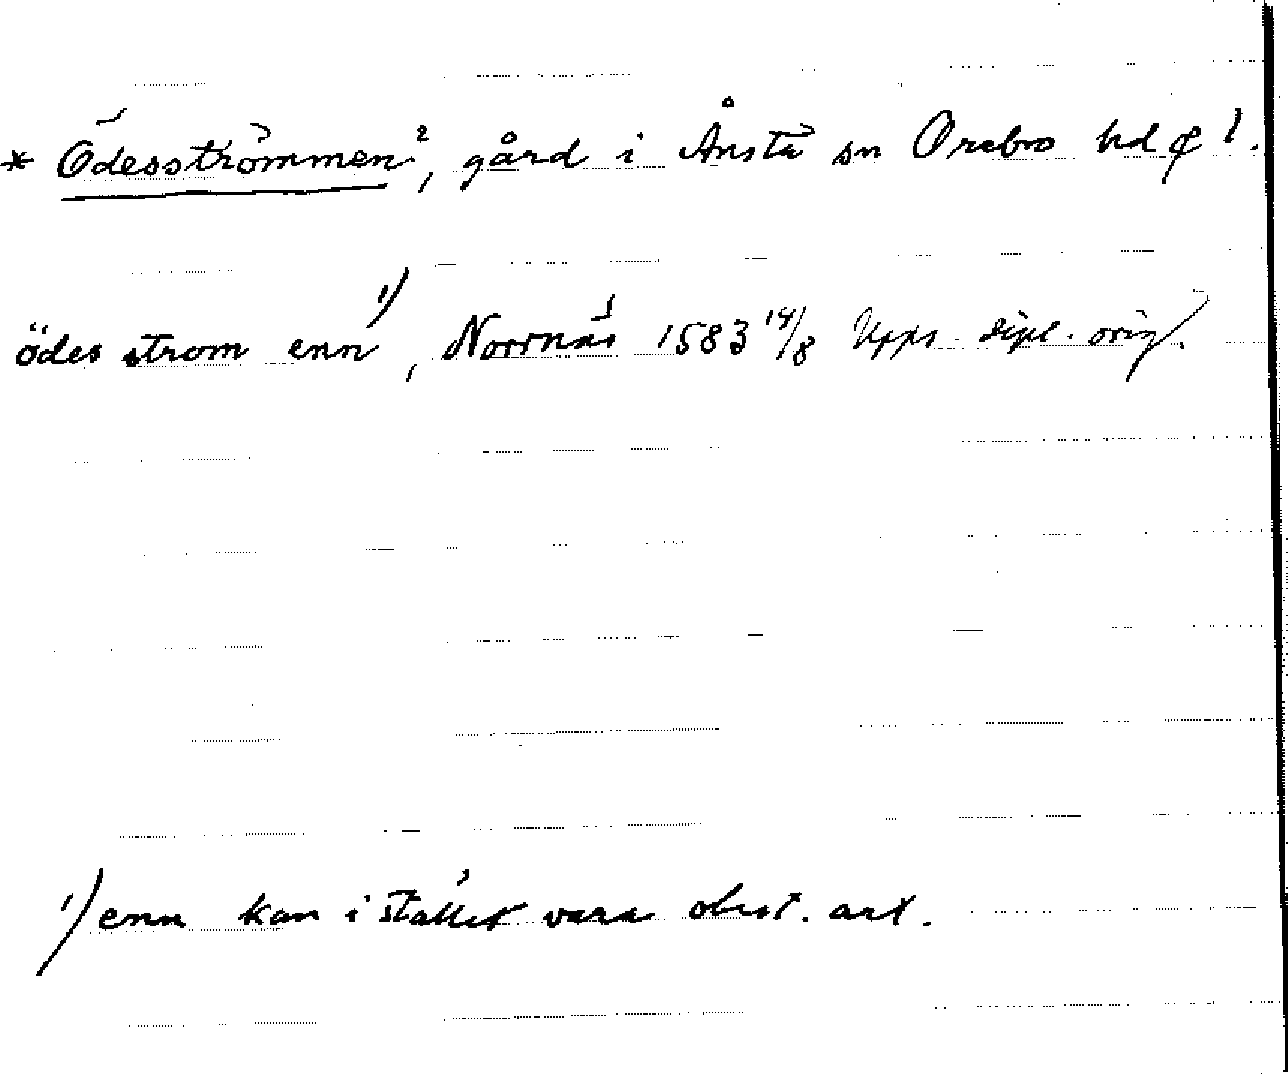 * Ödesströmmen?, gård i Ånsta sn Örebro hd ö l.
ödes strom enn 1), Norrnäs 1583 14/8 Upps. dipl. orig.
1) enn kan i stället vara obest. art.